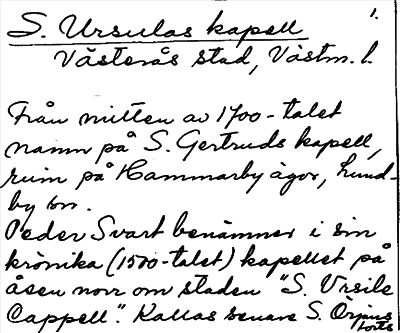 1.
S. Ursulas kapell
Västerås stad, Västm. l.
Från mitten av 1700-talet
namn på S. Gertruds kapell,
ruin på Hammarby ägor, Lund-
by sn.
Peder Svart benämner i sin
krönika (1500-talet) kapellet på
åsen norr om staden "S. Vrsile
Cappell". Kallas senare S. Örjans